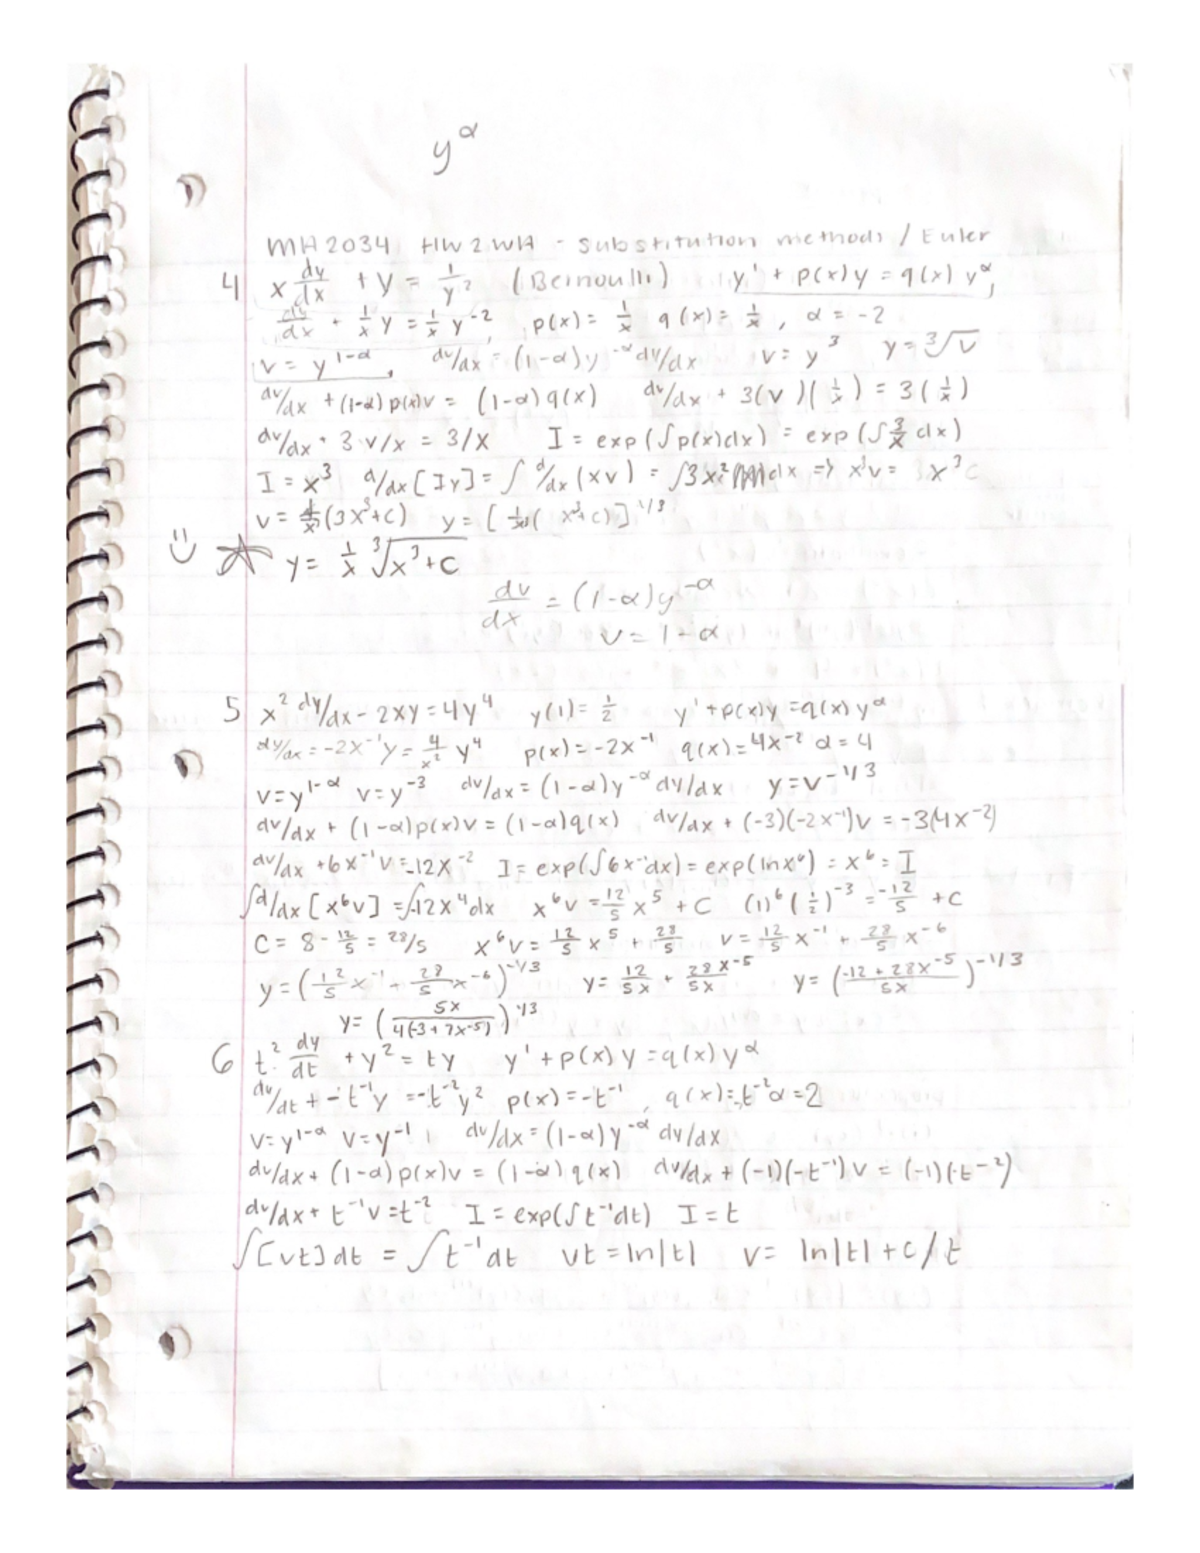 y^α
MA2034 HW2WA - Substitution methods / Euler
4 x dy/dx + y = 1/y² (Bernoulli) y' + p(x)y = q(x) y^α,
dy/dx + 1/x y = 1/x y^-2, p(x) = 1/x q(x) = 1/x, α = -2
v = y^1-α, dv/dx = (1-α)y^-α dy/dx v = y^3 y = ³√v
dv/dx + (1-α)p(x)v = (1-α)q(x) dv/dx + 3(v)(1/x) = 3(1/x)
dv/dx + 3 v/x = 3/x I = exp(∫p(x)dx) = exp(∫3/x dx)
I = x³ d/dx[Iy] = ∫ d/dx(xv) = ∫3x² dx => x³v = x³ C
v = 1/x³(3x³+C) y = [1/x³(x³+C)]^1/3
y = 1/x ³√x³+C
dv/dx = (1-α)y^-α
v = 1-α
5 x² dy/dx - 2xy = 4y⁴ y(1) = 1/2 y' + p(x)y = q(x)y^α
dy/dx = -2x^-1 y = 4/x² y⁴ p(x) = -2x^-1 q(x) = 4x^-2 α = 4
v = y^1-α v = y^-3 dv/dx = (1-α)y^-α dy/dx y = v^-1/3
dv/dx + (1-α)p(x)v = (1-α)q(x) dv/dx + (-3)(-2x^-1)v = -3(4x^-2)
dv/dx + 6x^-1 v = -12x^-2 I = exp(∫6x^-1dx) = exp(lnx⁶) = x⁶ = I
∫d/dx[x⁶v] = ∫-12x⁴dx x⁶v = -12/5 x⁵ + C (1)⁶(1/2)^-3 = -12/5 + C
C = 8 - 12/5 = 28/5 x⁶v = 12/5 x⁵ + 28/5 v = 12/5 x^-1 + 28/5 x^-6
y = (12/5 x^-1 + 28/5 x^-6)^-1/3 y = 12/5x + 28x^-5/5x y = (-12 + 28x^-5/5x)^-1/3
y = (5x/4(-3+7x^-5))^1/3
6 t² · dy/dt + y² = ty y' + p(x)y = q(x)y^α
dy/dt + -t^-1 y = -t^-2 y² p(x) = -t^-1, q(x) = -t^-2 α = 2
v = y^1-α v = y^-1 dv/dx = (1-α)y^-α dy/dx
dv/dx + (1-α)p(x)v = (1-α)q(x) dv/dx + (-1)(-t^-1)v = (-1)(-t^-2)
dv/dx + t^-1 v = t^-2 I = exp(∫t^-1dt) I = t
∫[vt]dt = ∫t^-1dt vt = ln|t| v = ln|t| + c/t